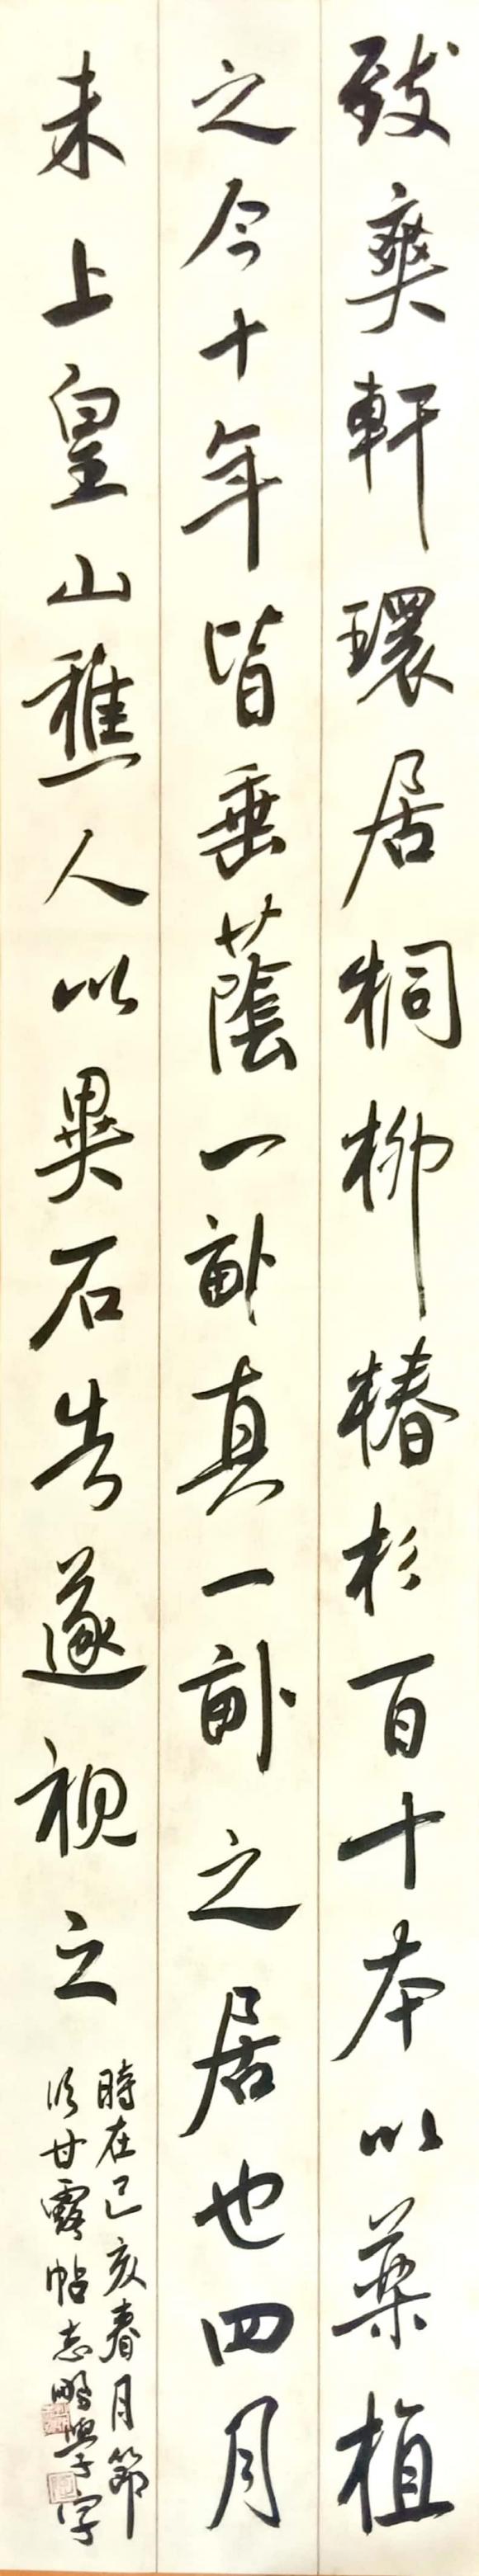 致爽軒環居桐柳椿杉百十本以藥植
之今十年皆垂蔭一畝真一畝之居也四月
末上皇山樵人以異石告遂視之
時在己亥春月節
臨甘露帖志鵬學字